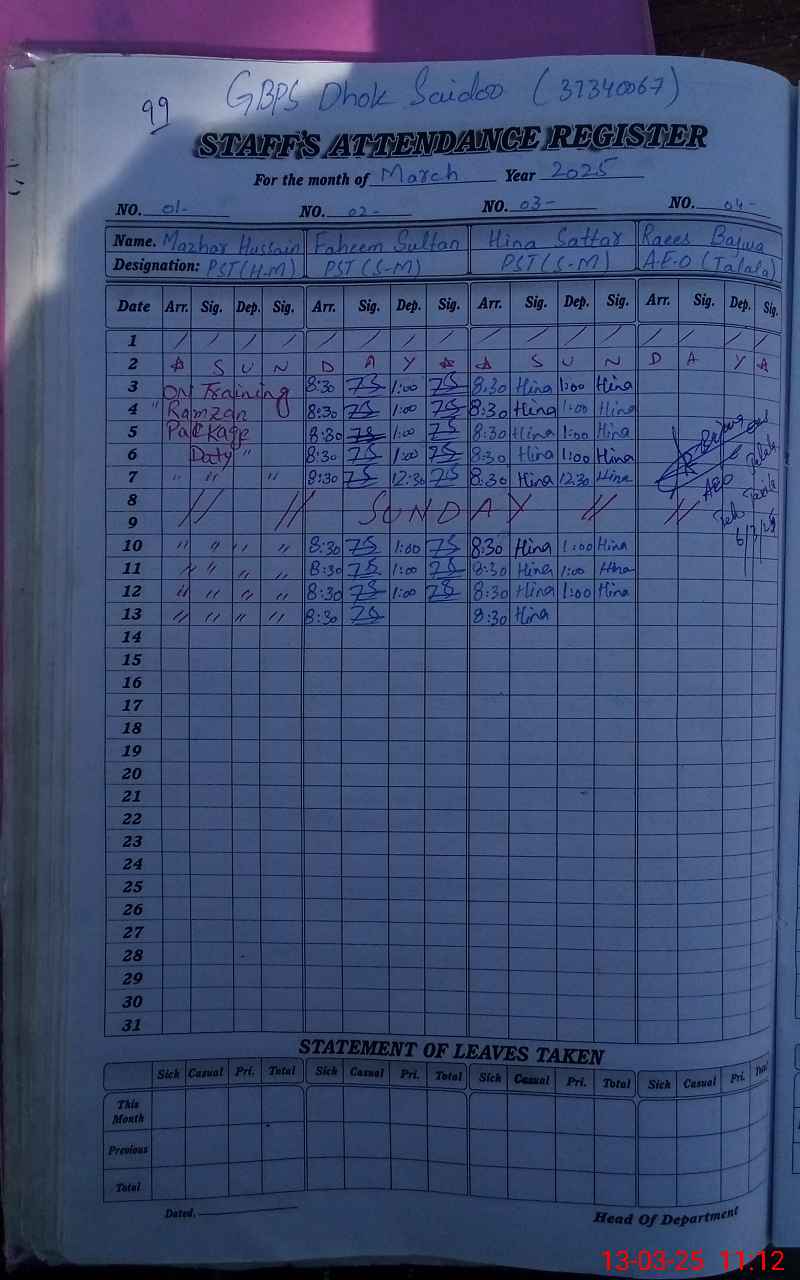 99 GBPS Dhok Saidoo (37340067)
STAFF'S ATTENDANCE REGISTER
For the month of March Year 2025
NO. 01- NO. 02- NO. 03- NO. 04-
Name. Mazhar Hussain Faheem Sultan Hina Sattar Raees Bajwa
Designation: PST(H-M) PST(S-M) PST(S-M) A.E.O (Talala)
Date Arr. Sig. Dep. Sig. Arr. Sig. Dep. Sig. Arr. Sig. Dep. Sig. Arr. Sig. Dep. Sig.
1 / / / / / / / / / / / / / / / /
2 S U N D A Y S U N D A Y
3 ON Training 8:30 1:00 8:30 Hina 1:00 Hina
4 " Ramzan 8:30 1:00 8:30 Hina 1:00 Hina
5 Package 8:30 1:00 8:30 Hina 1:00 Hina
6 Duty " 8:30 1:00 8:30 Hina 1:00 Hina
7 " " " 8:30 12:30 8:30 Hina 12:30 Hina
Bajwa
AEO
6/3/25
8
9 // // SUNDAY // //
10 " " " " 8:30 1:00 8:30 Hina 1:00 Hina
11 " " " " 8:30 1:00 8:30 Hina 1:00 Hina
12 " " " " 8:30 1:00 8:30 Hina 1:00 Hina
13 " " " " 8:30 8:30 Hina
14
15
16
17
18
19
20
21
22
23
24
25
26
27
28
29
30
31
STATEMENT OF LEAVES TAKEN
Sick Casual Pri. Total Sick Casual Pri. Total Sick Casual Pri. Total Sick Casual Pri. Total
This
Month
Previous
Total
Dated,
Head Of Department
13-03-25 11:12